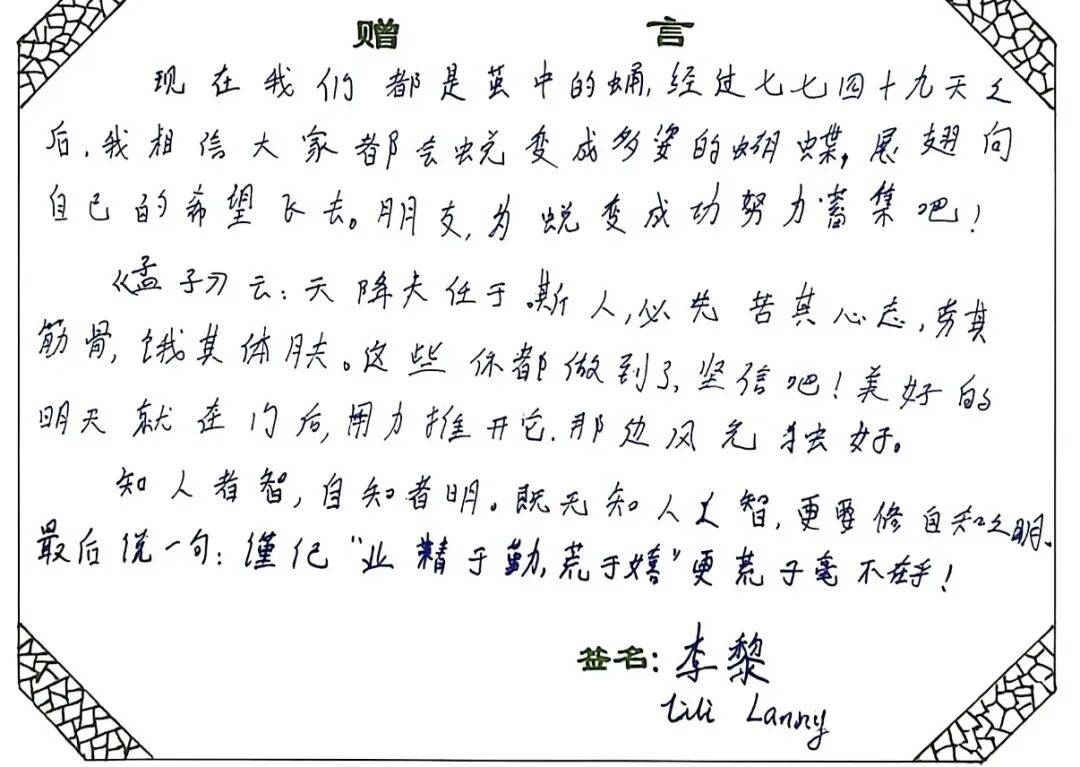 赠 言
现在我们都是茧中的蛹,经过七七四十九天之
后,我相信大家都会蜕变成多姿的蝴蝶,展翅向
自己的希望飞去。朋友,为蜕变成功努力蓄集吧!
《孟子》云:天降大任于斯人,必先苦其心志,劳其
筋骨,饿其体肤。这些你都做到了,坚信吧!美好的
明天就在门后,用力推开它.那边风光独好。
知人者智,自知者明。既无知人之智,更要修自知之明、
最后说一句:谨记"业精于勤,荒于嬉"更荒于毫不在乎!
签名:李黎
Lili Lanny